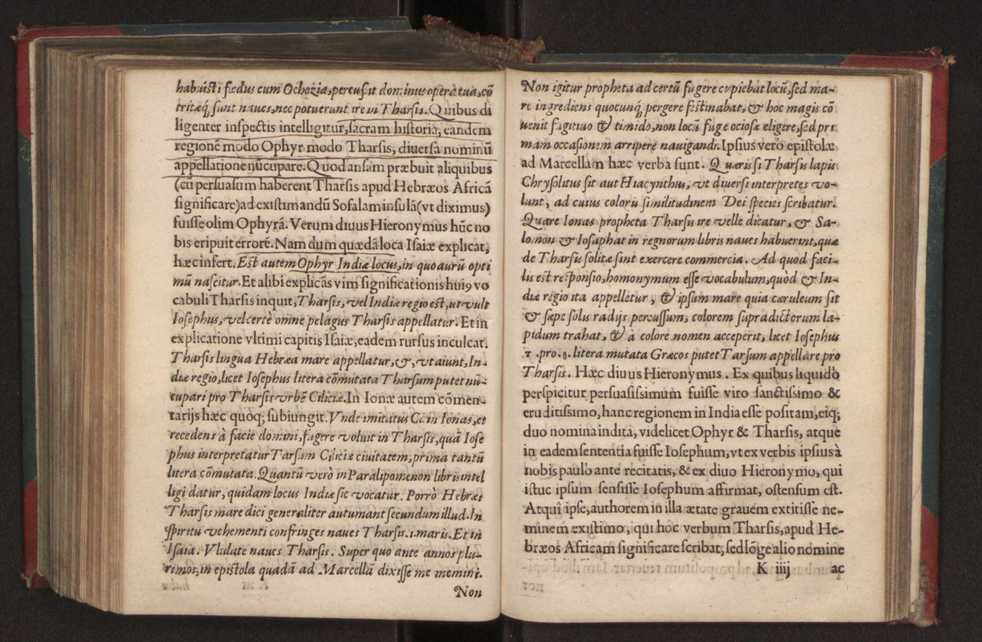 habuisti fœdus cum Ochozia, percussit dominus opera tua, cõ
tritæq́; sunt naues, nec potuerunt ire in Tharsis. Quibus di
ligenter inspectis intelligitur, sacram historiã, eandem
regionẽ modo Ophyr modo Tharsis, diuersa nominũ
appellatione nũcupare. Quod ansam præbuit aliquibus
(cũ persuasum haberent Tharsis apud Hebræos Africã
significare) ad existimandũ Sofalam insulã (vt diximus)
fuisse olim Ophyrã. Verum diuus Hieronymus hũc no
bis eripuit errorẽ. Nam dum quædã loca Isaiæ explicat,
hæc infert. Est autem Ophyr Indiæ locus, in quo aurũ opti
mũ nascitur. Et alibi explicãs vim significationis hui9 vo
cabuli Tharsis inquit, Tharsis, vel Indiæ regio est, vt vult
Iosephus, vel certè omne pelagus Tharsis appellatur. Et in
explicatione vltimi capitis Isaiæ, eadem rursus inculcat.
Tharsis lingua Hebræa mare appellatur, &, vt aiunt, In-
diæ regio, licet Iosephus litera cõmutata Tharsum putet nũ-
cupari pro Tharsis vrbẽ Ciliciæ. In Ionæ autem cõmen-
tarijs hæc quoq; subiungit. Vnde imitatus Cain Ionas, et
recedens à facie domini, fugere voluit in Tharsis, quã Iose
phus interpretatur Tarsum Ciliciæ ciuitatem, prima tantũ
litera cõmutata. Quantũ verò in Paralipomenon libris intel
ligi datur, quidam locus Indiæ sic vocatur. Porrò Hebræi
Tharsis mare dici generaliter autumant secundum illud. In
spiritu vehementi confringes naues Tharsis. i. maris. Et in
Isaia. Vlulate naues Tharsis. Super quo ante annos plu-
rimos, in epistola quadã ad Marcellã dixisse me memini.
Non
Non igitur propheta ad certũ fugere cupiebat locũ, sed ma-
re ingrediens quocunq́; pergere festinabat, & hoc magis cõ
uenit fugitiuo & timido, non locũ fugæ ociose eligere, sed pri
mam occasionem arripere nauigandi. Ipsius verò epistolæ
ad Marcellam hæc verba sunt. Quæris si Tharsis lapis
Chrysolitus sit aut Hiacynthus, vt diuersi interpretes vo-
lunt, ad cuius coloris similitudinem Dei species scribatur.
Quare Ionas propheta Tharsis ire velle dicatur, & Sa-
lomon & Iosaphat in regnorum libris naues habuerint, quæ
de Tharsis solitæ sint exercere commercia. Ad quod faci-
lis est responsio, homonymum esse vocabulum, quòd & In-
diæ regio ita appelletur, & ipsum mare quia cæruleum sit
& sæpe solis radijs percussum, colorem supradictorum la-
pidum trahat, & à colore nomen acceperit, licet Iosephus
τ. pro. θ. litera mutata Græcos putet Tarsum appellare pro
Tharsis. Hæc diuus Hieronymus. Ex quibus liquidò
perspicitur persuasissimum fuisse viro sanctissimo &
eruditissimo, hanc regionem in India esse positam, eiq;
duo nomina indita, videlicet Ophyr & Tharsis, atque
in eadem sententia fuisse Iosephum, vt ex verbis ipsius à
nobis paulo ante recitatis, & ex diuo Hieronymo, qui
istuc ipsum sensisse Iosephum affirmat, ostensum est.
Atqui ipse, authorem in illa ætate grauem extitisse ne-
minem existimo, qui hoc verbum Tharsis, apud He-
bræos Africam significare scribat, sed lõge alio nomine
K iiij ac